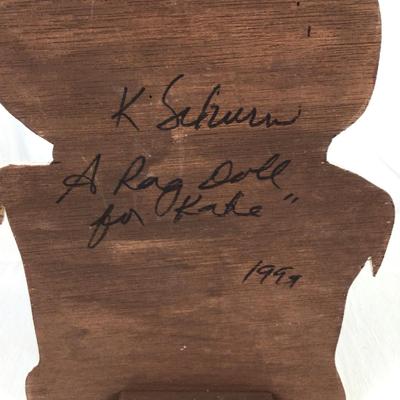 K. Schurr
"A Rag Doll
for Katie"
1999